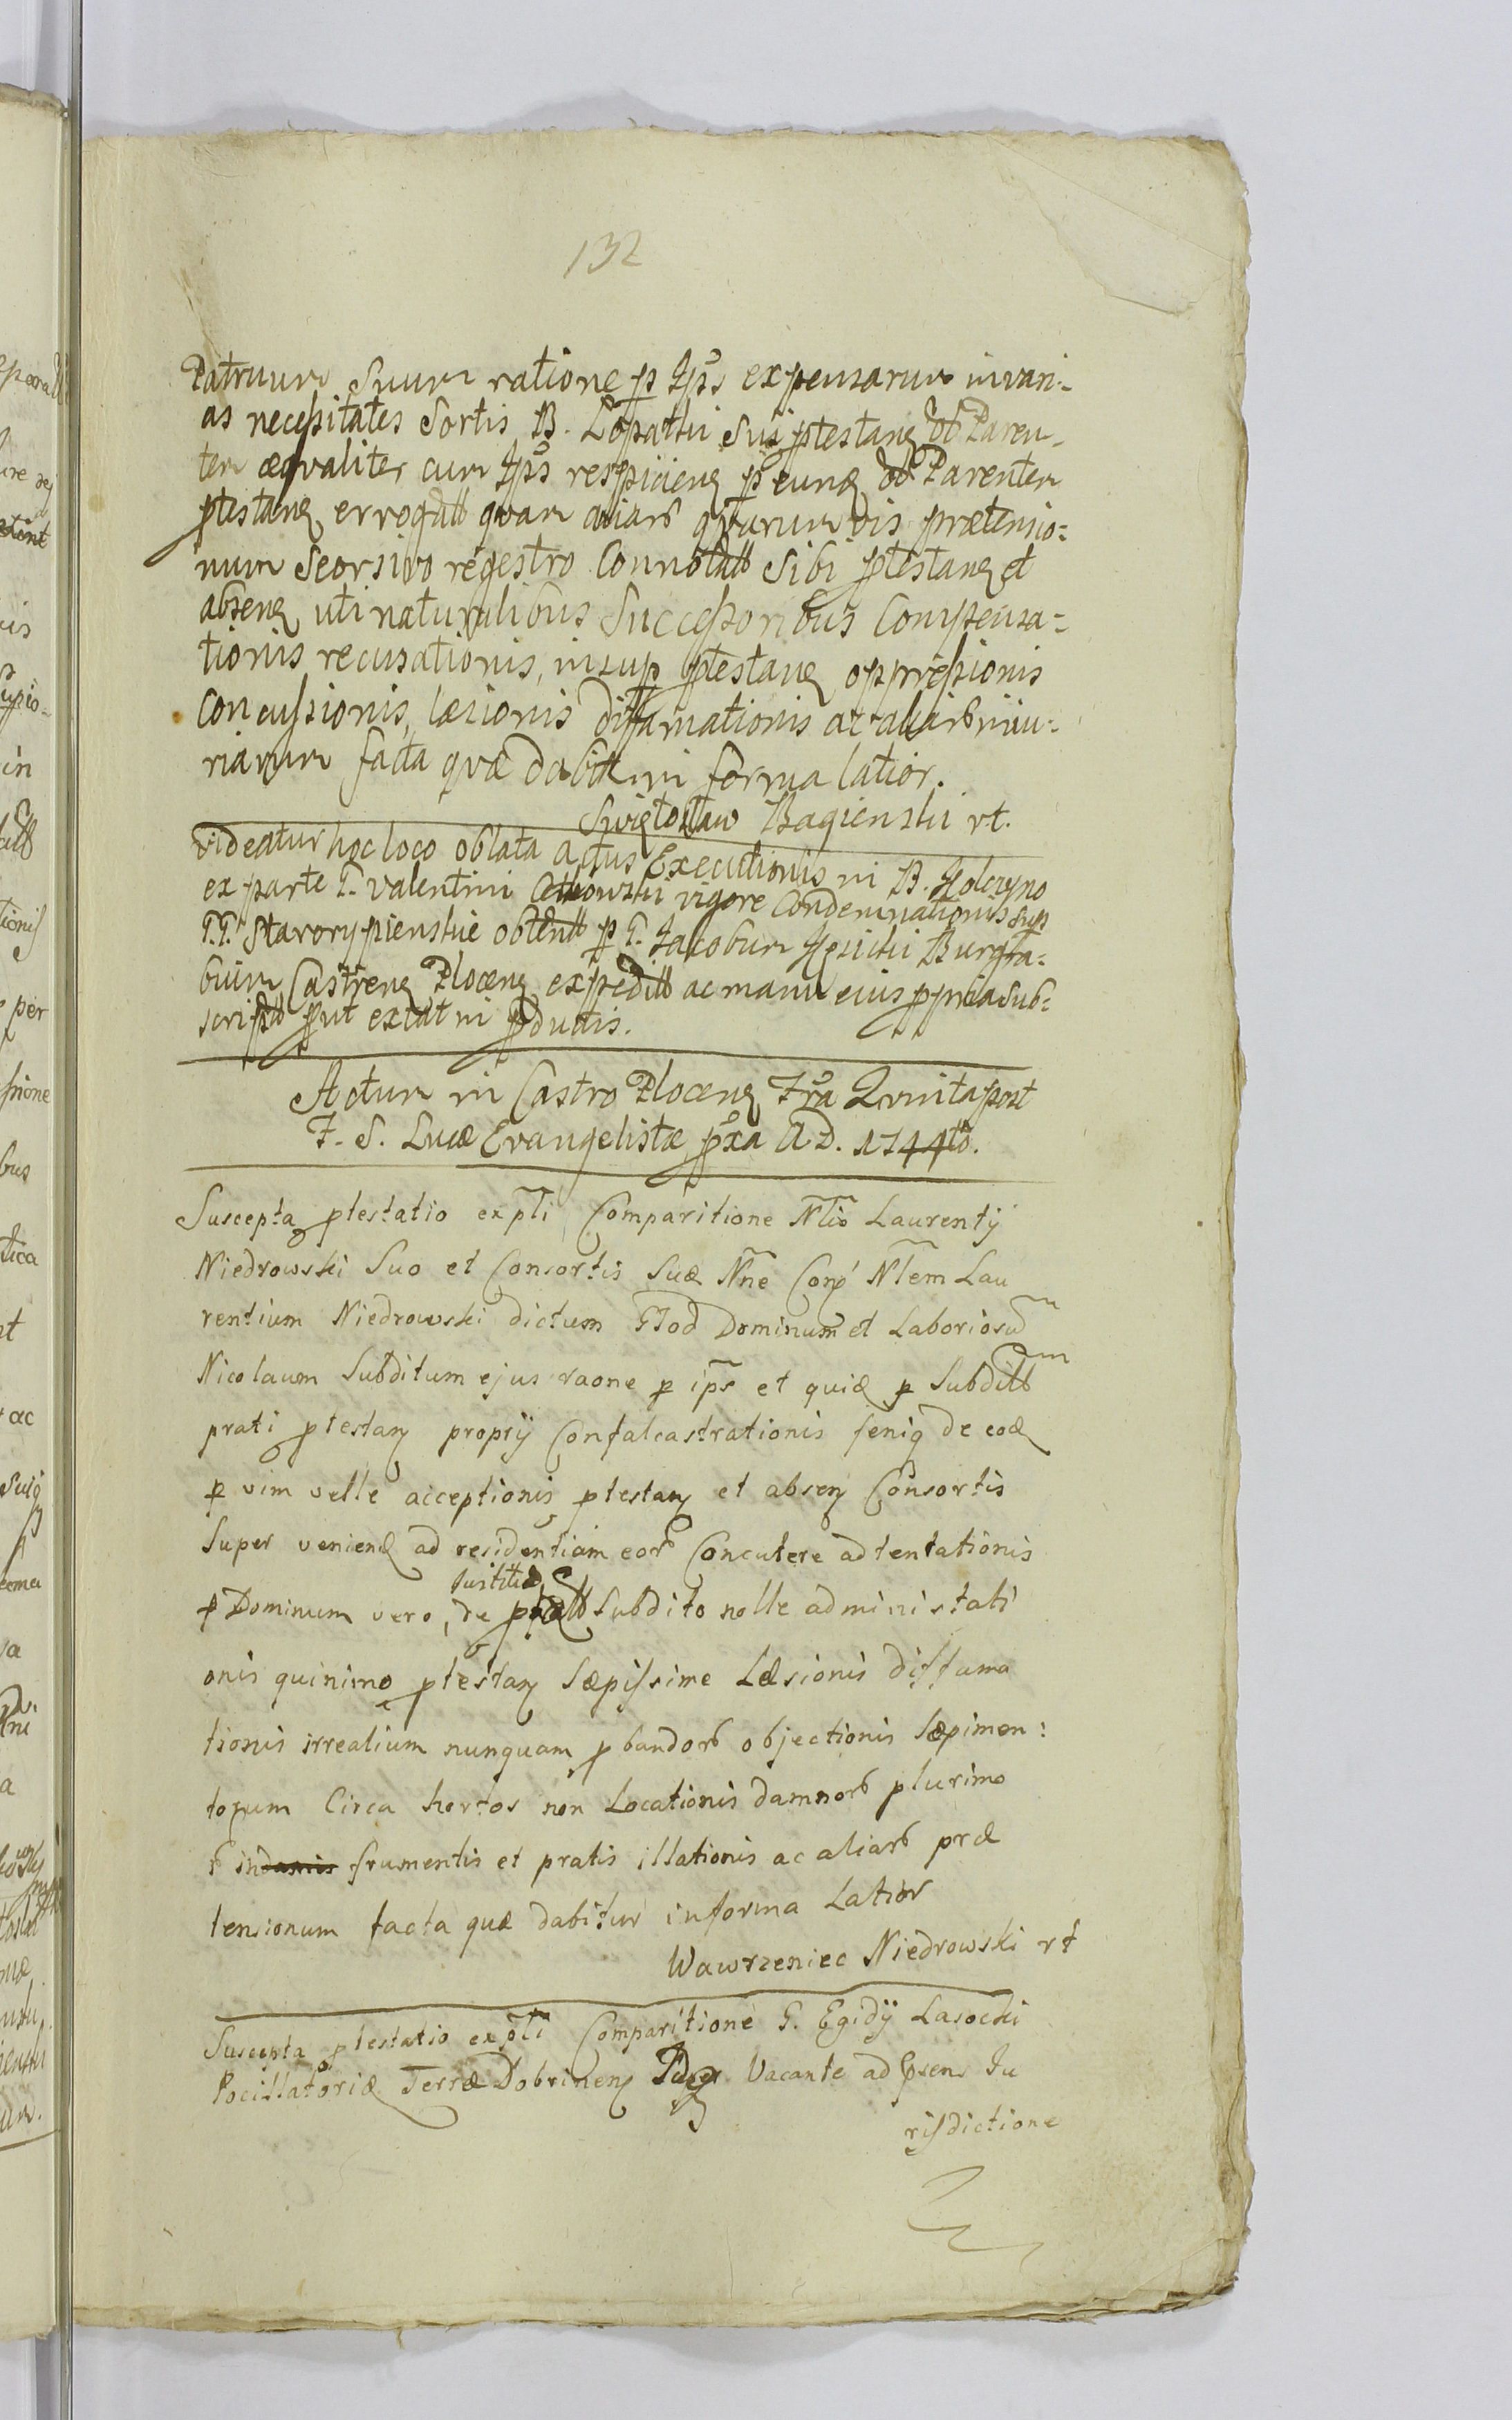 132
Patruum Suum ratione p Ips expensarum in vari-
as necessitates Sortis B. Łopatki Sui ptestanꝫ ob Paren-
tem æqvaliter cum Ips respicienꝫ p eund ob Parentem
ptestanꝫ errogatt qvam aliarb qvarumvis prætensio:
num Seorsivo regestro Connotatt Sibi ptestanꝫ et
absenꝫ uti naturalibus Successoribus Compensa-
tionis recusationis, insup ptestanꝫ oppressionis
Concussionis, læsionis diffamationis ac aliarb iniu-
riarum facta qvæ dabitt in forma latior.
Swiętosław Bagienski rt.
Videatur hoc loco oblata actus Executionis in B. Golczyno
ex parte G. Valentini vigore Condemnationis sup
G.G. Starorypienskie obtentt p G. Jacobum Burgra-
bium Castrenꝫ Plocenꝫ expeditt ac manu eius ppria sub-
scriptt put extat in pductis.
Actum in Castro Plocenꝫ Fra Qvinta post
F. S. Lucæ Evangelistæ pxa A.D. 1744to.
Suscepta ptestatio expti Comparitione Ntis Laurentÿ
Niedrowski Suo et Consortis Suæ Nne Conꝫ Ntem Lau
rentium Niedrowski dictum God Dominum et Laboriosu
Nicolaum Subditum ejus raone p ips et quid p Subditt
prati ptestanꝫ proprÿ Confalcastrationis feniq de eod
p vim velle acceptionis ptestanꝫ et absenꝫ Consortis
Super veniend ad residentiam eorb Concutere adtentationis
Iustitiæ
p Dominum vero, de Subdito nolle administrati
onis quinimo ptestanꝫ Sæpissime Læsionis diffama
tionis irrealium nunquam pbandorb objectionis Sæpimen:
torum Circa hortos non Locationis damnorb plurimo
rb in frumentis et pratis illationis ac aliarb præ
tensionum facta quæ dabitur in forma Latior
Wawrzeniec Niedrowski rt
Suscepta ptestatio expti Comparitione G. Egidÿ Lasocki
Pocillatoridæ Terræ Dobrinenꝫ Vacante ad psenꝫ Ju
risdictione